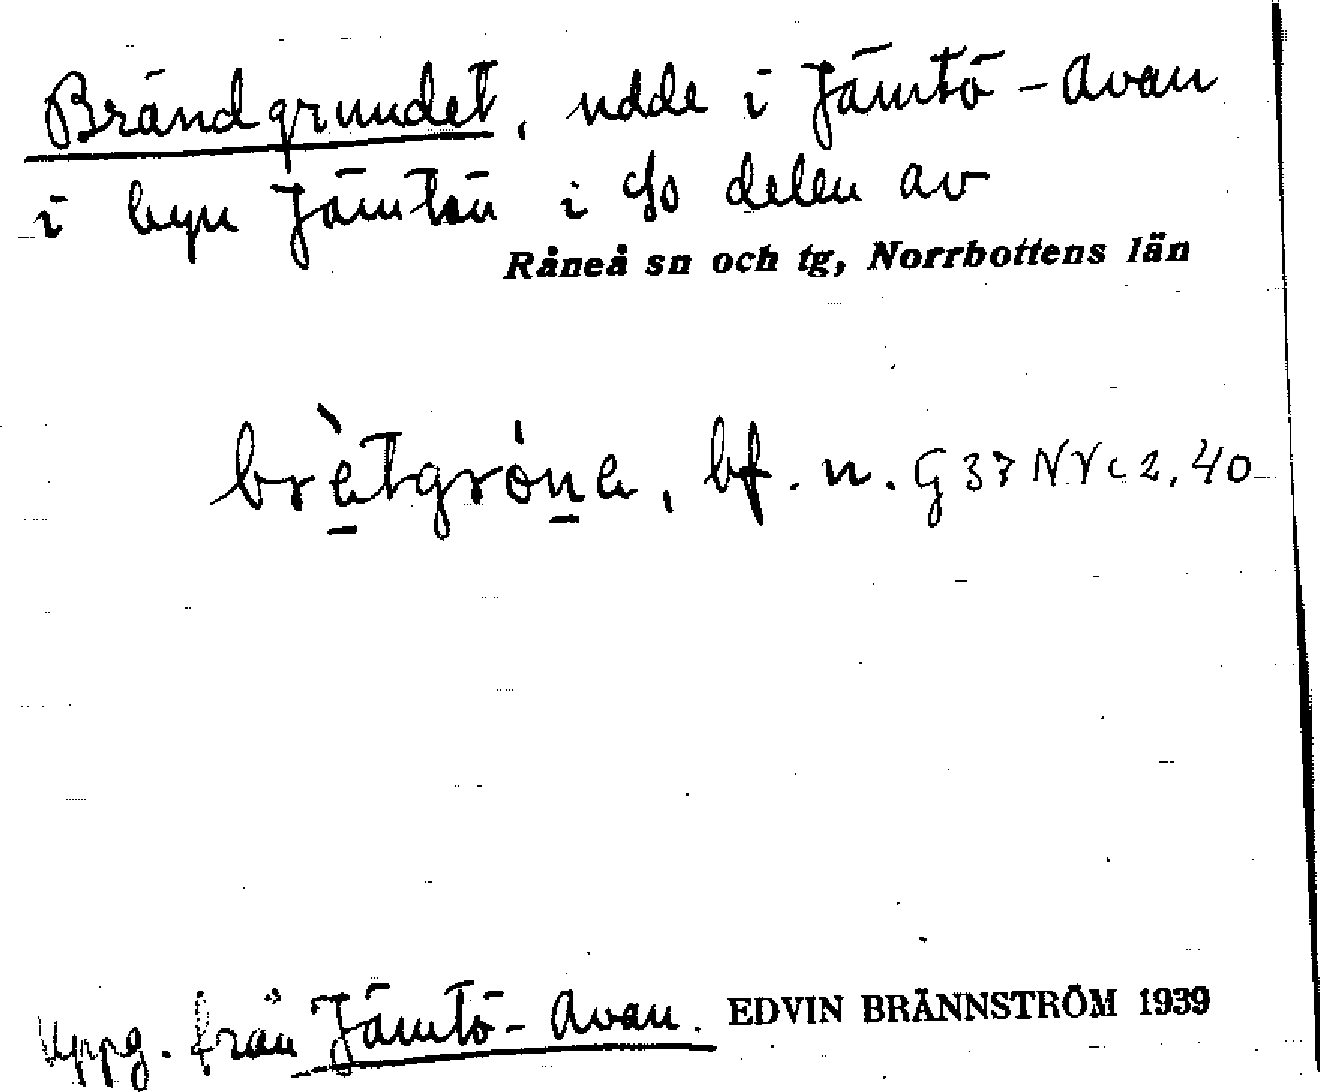 Brändgrundet, udde i Jämtö-Avan
i byn Jämtön i so delen av
Råneå sn och tg, Norrbottens län
brètgróne, bf. n. G37NVc2,40
Uppg. från Jämtö-Avan. EDVIN BRÄNNSTRÖM 1939